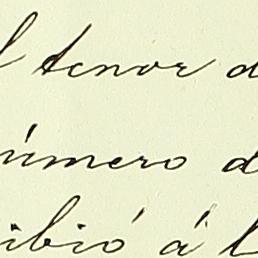 l tenor d
úmero d
ibió á l